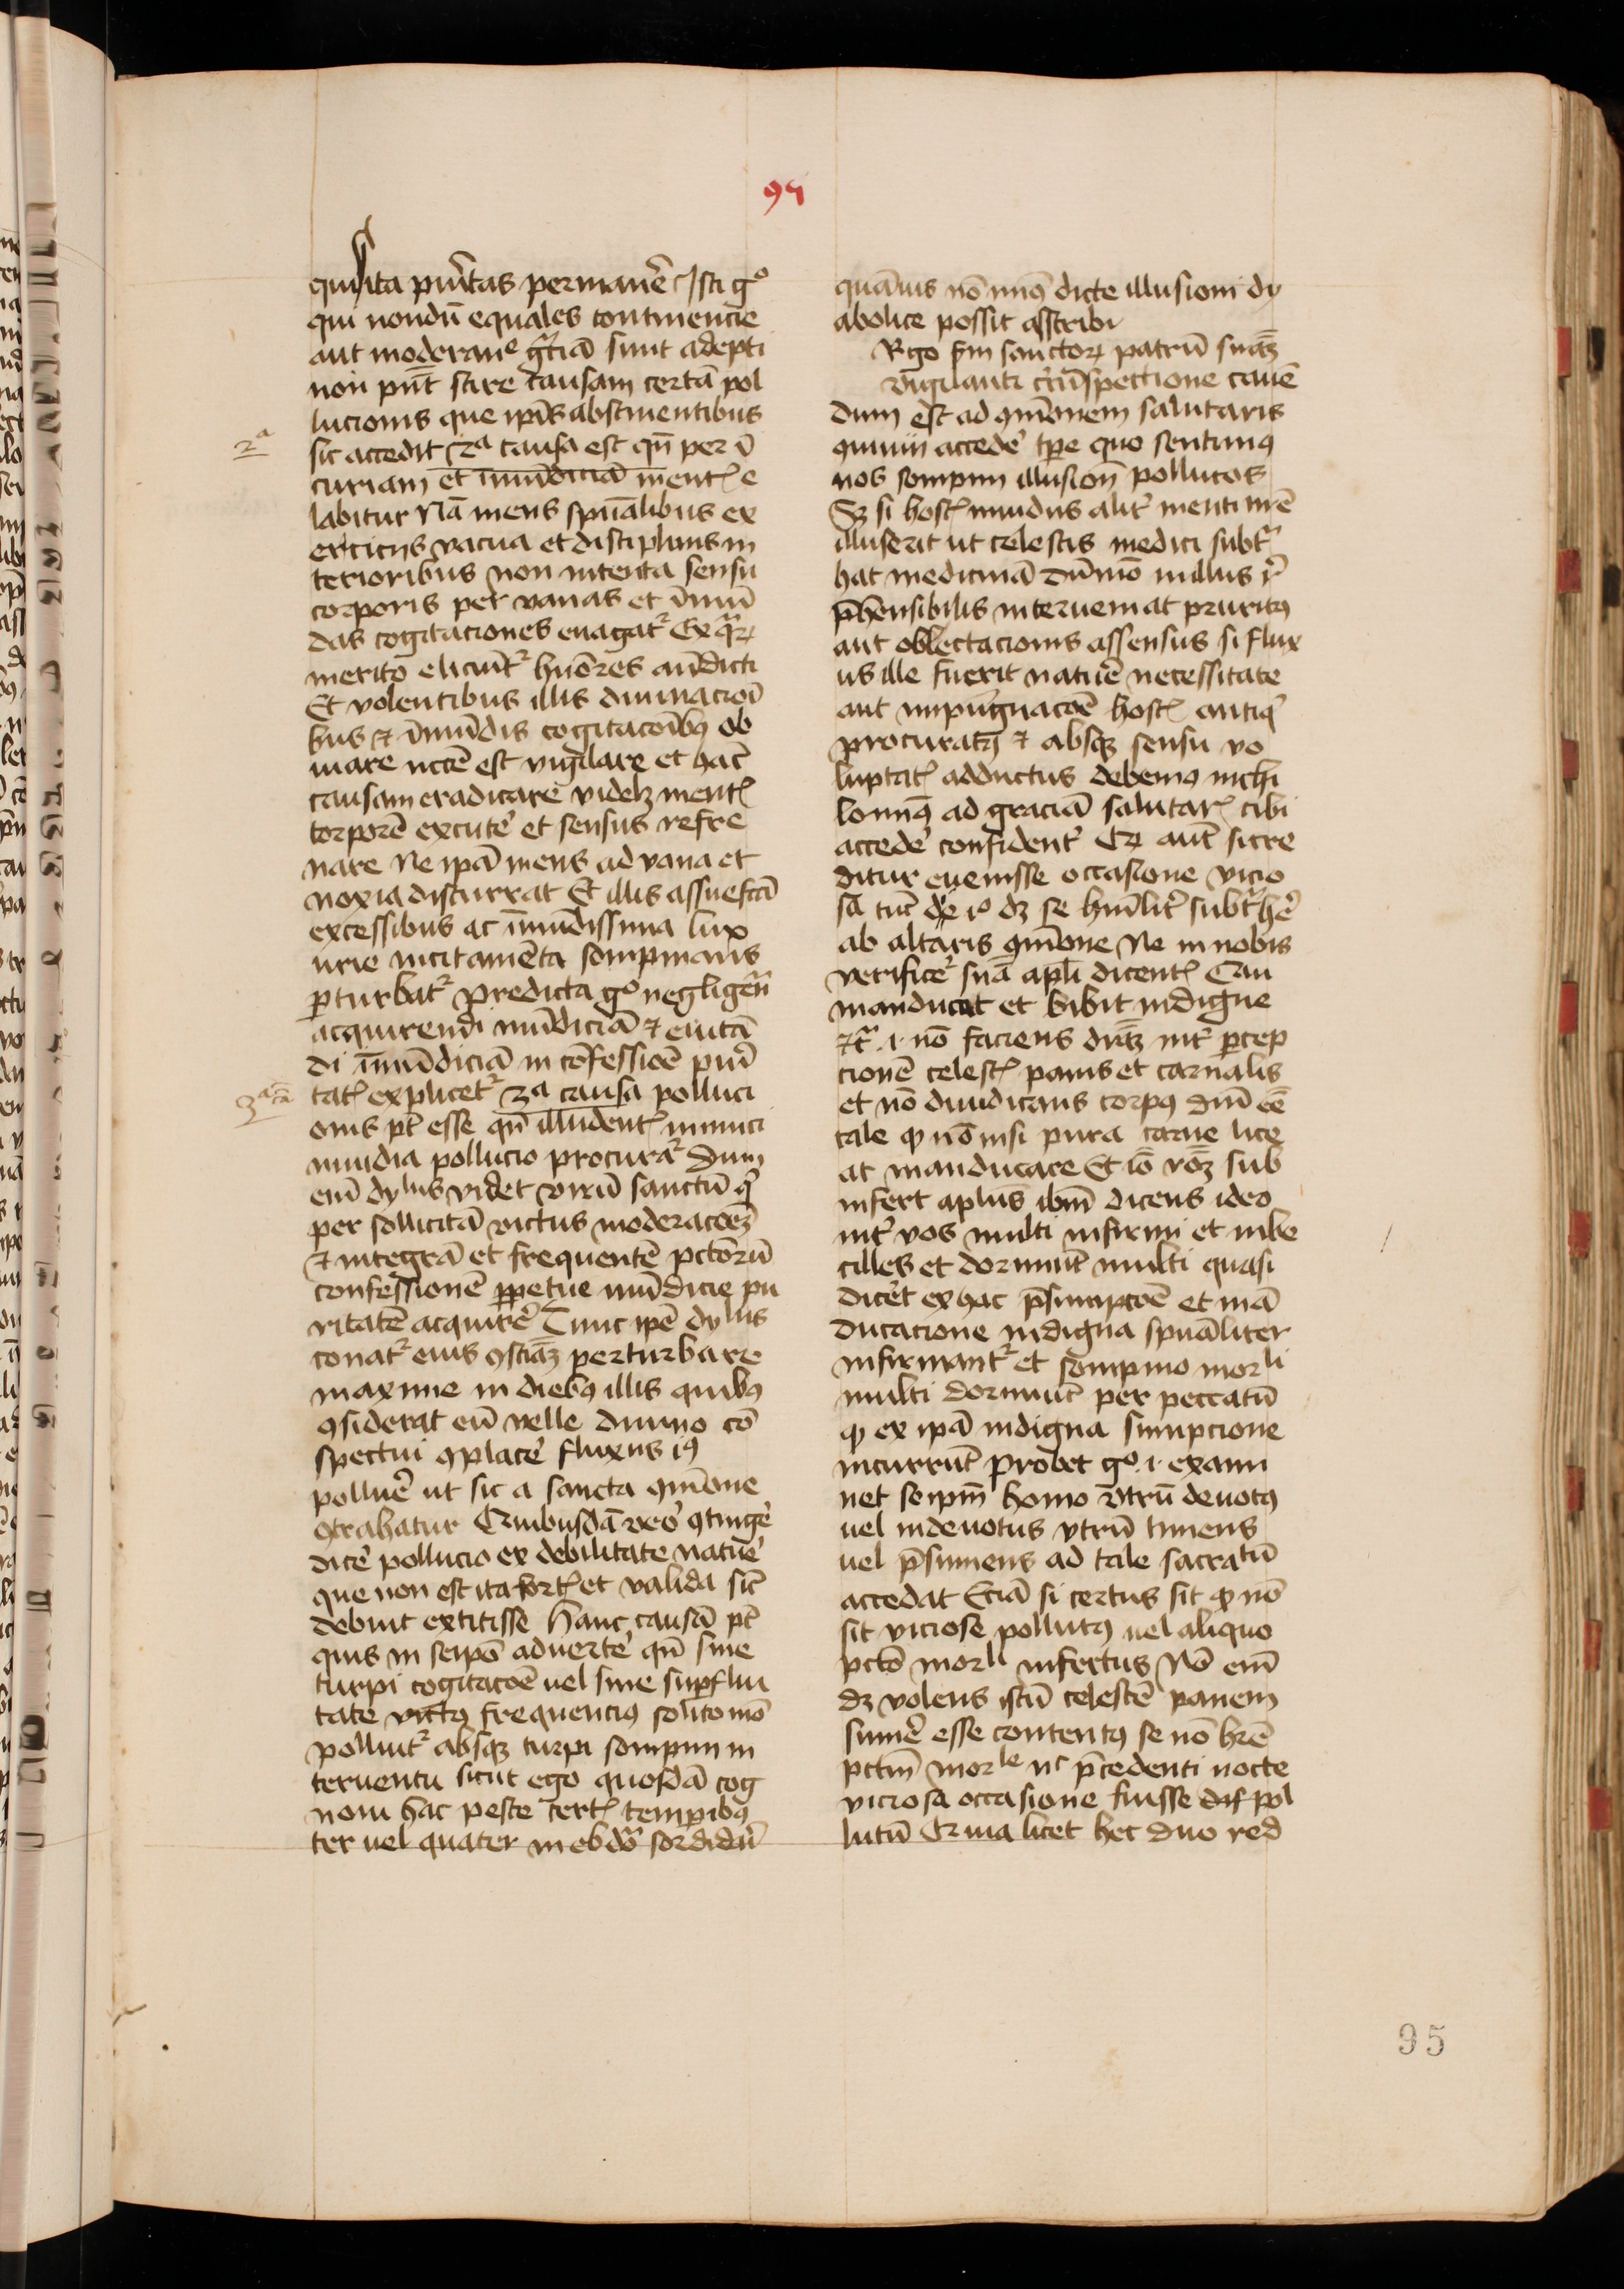 95
quisita puritas permanē Isti gͦ
qui nondū equales continencie
aut moderanᵉ gr̄tiā sunt adepti
non pn̄t scire causam certā pol
lucionis que ip̄is abstinentibus
2ª
sic accedit 2ª causa est qn̄ per ī
curiam et inmūdiciā mentꝭ e
labitur Nā mens sp̄ualibus ex
erciciis vacua et disciplinis in
terioribus non intenta sensu
corporis per vanas et īmū
das cogitaciones euagatᷣ Ex qᷓꝝ
merito eliciūtᷣ hūores andicti
Et volentibus illis
bus ⁊ īmūdis cogitacōibꝯ ob
uiare nccē est vigilare et hāc
causam eradicare videlꝫ mentꝭ
torporē excutē et sensus refre
nare Ne ipā mens ad vana et
noxia discurrat Et illis assuefctā
excessibus ac īmūdissima lux
urie incitamēta sompnians
ꝑturbatᷣ Predicta gͦ negligēn
acquirendi mūdiciā ⁊ euitā
di īmūdiciā in cōfessioē puri
3ª cā
tatꝭ explicetᷣ 3ª causa polluci
onis pt̄ esse qn̄ illudentꝭ inimici
inuidia pollucio procuratᷣ Dum
enī dyᵇˡus videt virū sanctū qͥ
per sollicitā victus moderacōeꝫ
⁊ integrā et frequentē pctōrū
confessionē ꝑpetue mūdicie pu
ritatē acquirē Tunc ipē dyᵇˡus
conatᷣ eius ꝯsciāꝫ perturbare
maxime in diebꝯ illis quibꝯ
ꝯsiderat eū velle diuino cō
spectui ꝯplacē fluxus iꝰ
polluē ut sic a sancta ꝯmōne
ꝯtrahatur Quibusdā vero ꝯtingē
dicē pollucio ex debilitate natuē
que non est ita fortꝭ et valida sic̄
debuit extitisse Hanc causā pt̄
quis in seipō aduertē qn̄ sine
turpi cogitacōe uel sine suꝑflui
tate victꝯ frequenciꝯ solito mō
polluitᷣ absqꝫ turpi sompnii in
teruentu sicut ego quosdā cog
noui hac peste certꝭ temꝑibꝯ
ter uel quater in ebdōᵃ sordidari
quāuis nō minꝯ dicte illusioni dy
abolice possit asscribi
Rgo scd̄m sanctoꝝ patrū sn̄iaꝫ
vigilanti circūspectione cauē
dum est ad ꝯmōnem salutaris
ꝯuiuii accedē tp̄e quo sentimꝯ
nos sompnii illusionē pollutos
Sꝫ si hostꝭ inuidus alitᷣ menti nr̄e
illuserit ut celestis medici subtᷓ
hat medicinā Dūmō nullus rͥ
p̄hēnsibilis interueniat pruritꝯ
aut oblectacionis assensus si flux
us ille fuerit natuē necessitate
aut impugnacōe hostꝭ antiqͥ
procuratꝯ ⁊ absqꝫ sensu vo
luptatꝭ adductus debemꝯ nichi
lominꝯ ad graciā salutarꝭ cibi
accedē confidentᷣ Qꝝ aut̄ sicre
ditur euenisse occasione vicio
sa tūc dꝫ se hūilitᷣ subtᷓhē
ab altaris ꝯmōne Ne in nobis
verificetᷣ sn̄iā apl̄i dicentꝭ Qui
manducat et bibit indigne
⁊c̄ᷓ .i. nō faciens dr̄iaꝫ intᷣ percep
cionē celestꝭ panis et carnalis
et nō diiudicans corpꝯ dn̄i eē
tale ꝙ nō nisi pura carne lice
at manducare Et iō rōꝫ sub
infert aplūs ibīdm̄ dicens ideo
intᷣ vos multi infirmi et inbe
cilles et dormiūt multi quasi
dicēt ex hac p̄sumpcōe et mā
ducacione indigna spūaliter
infirmantᷣ et sompno morˡⁱ
multi dormiūt per peccatū
ꝙ ex ipā indigna sumpcione
incurrūt Probet gͦ .i. exami
net seipm̄ homo vtrū deuotꝯ
uel indeuotus vtrū timens
uel p̄sumens ad tale sacratū
accedat Eciā si certus sit ꝙ nō
sit viciose pollutꝯ uel aliquo
pctō morˡⁱ infectus Nō enī
dꝫ volens istū celestē panem
sumē esse contentꝯ se nō hr̄e
pctm̄ morˡᵉ nᶜ p̄cedenti nocte
viciosa occasione fuisse pol
lutū Qͥ uia licet hec duo red
95